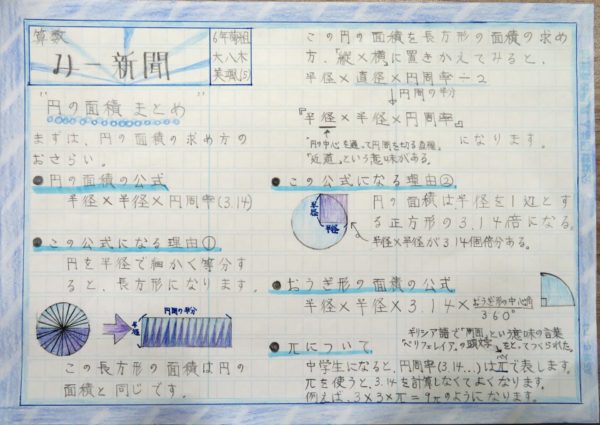 算数
り一新聞
6年
大八木
"円の面積 まとめ"
まずは、円の面積の求め方の
おさらい。
●円の面積の公式
半径×半径×円周率(3.14)
●この公式になる理由①
円を半径で細かく等分す
ると、長方形になります。
円周の半分
半径
この長方形の面積は円の
面積と同じです。
この円の面積を長方形の面積の求め
方、「縦×横」に置きかえてみると、
半径×直径×円周率÷2
↓円周の半分
『半径×半径×円周率』
になります。
"円の中心を通って円周を切る直線。
「近道」という意味がある。
●この公式になる理由②
半径
半径
円の面積は半径を1辺とす
る正方形の3.14倍になる。
半径×半径が3.14個倍分ある。
●おうぎ形の面積の公式
半径×半径×3.14×おうぎ形の中心角
360°
ギリシア語で「周囲」という意味の言葉
"ペリフェレイア"の頭文字をとってつくられた。
●πについて
中学生になると、円周率(3.14...)はπで表します。
πを使うと、3.14を計算しなくてよくなります。
例えば、3×3×π=9πのようになります。